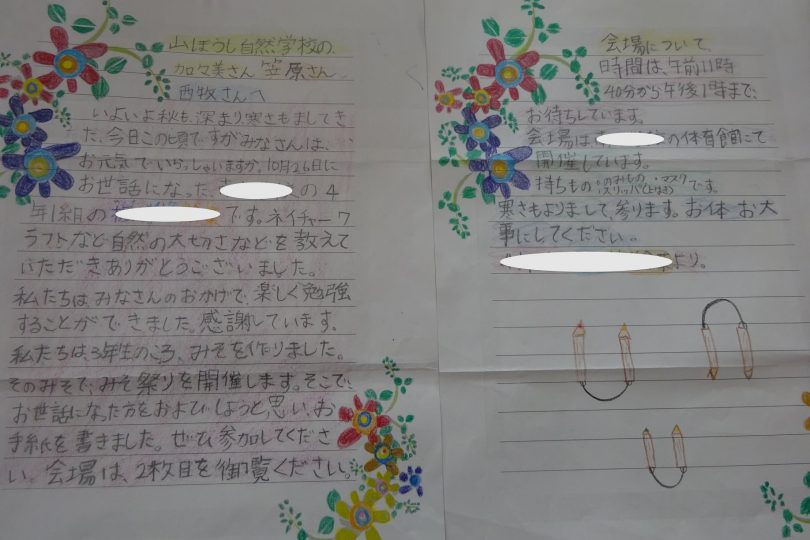 山ぼうし自然学校の
加々美さん 笠原さん
西牧さんへ
いよいよ秋も、深まり寒さもましてきまし
た、今日この頃ですがみなさんは、
お元気でいらっしゃいますか。10月26日に
お世話になった、の4
年1組のです。ネイチャークラ
ラフトなど自然の大切さなどを教えて
いただきありがとうございました。
私たちは、みなさんのおかげで、楽しく勉強
することができました。感謝しています。
私たちは、3年生のころ、みそを作りました。
そのみそで、みそ祭りを開催します。そこで、
お世話になった方をおよびしようと思い、お
手紙を書きました。ぜひ参加してくださ
い。会場は、2枚目を御覧ください。
会場について、
時間は、午前11時
40分から午後1時まで、
お待ちしています。
会場は、の体育館にて
開催しています。
持ちもの・のみもの・マスク
・スリッパ(上はき)です。
寒さもよりまして、参ります。お体お大
事にしてください。
より。